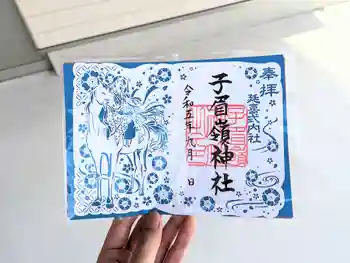 奉拝
延喜式内社
子眉嶺神社
令和五年九月 日